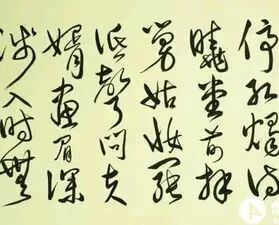 停紅燭待
曉堂前拜
舅姑妝罷
低聲問夫
婿畫眉深
淺入時無